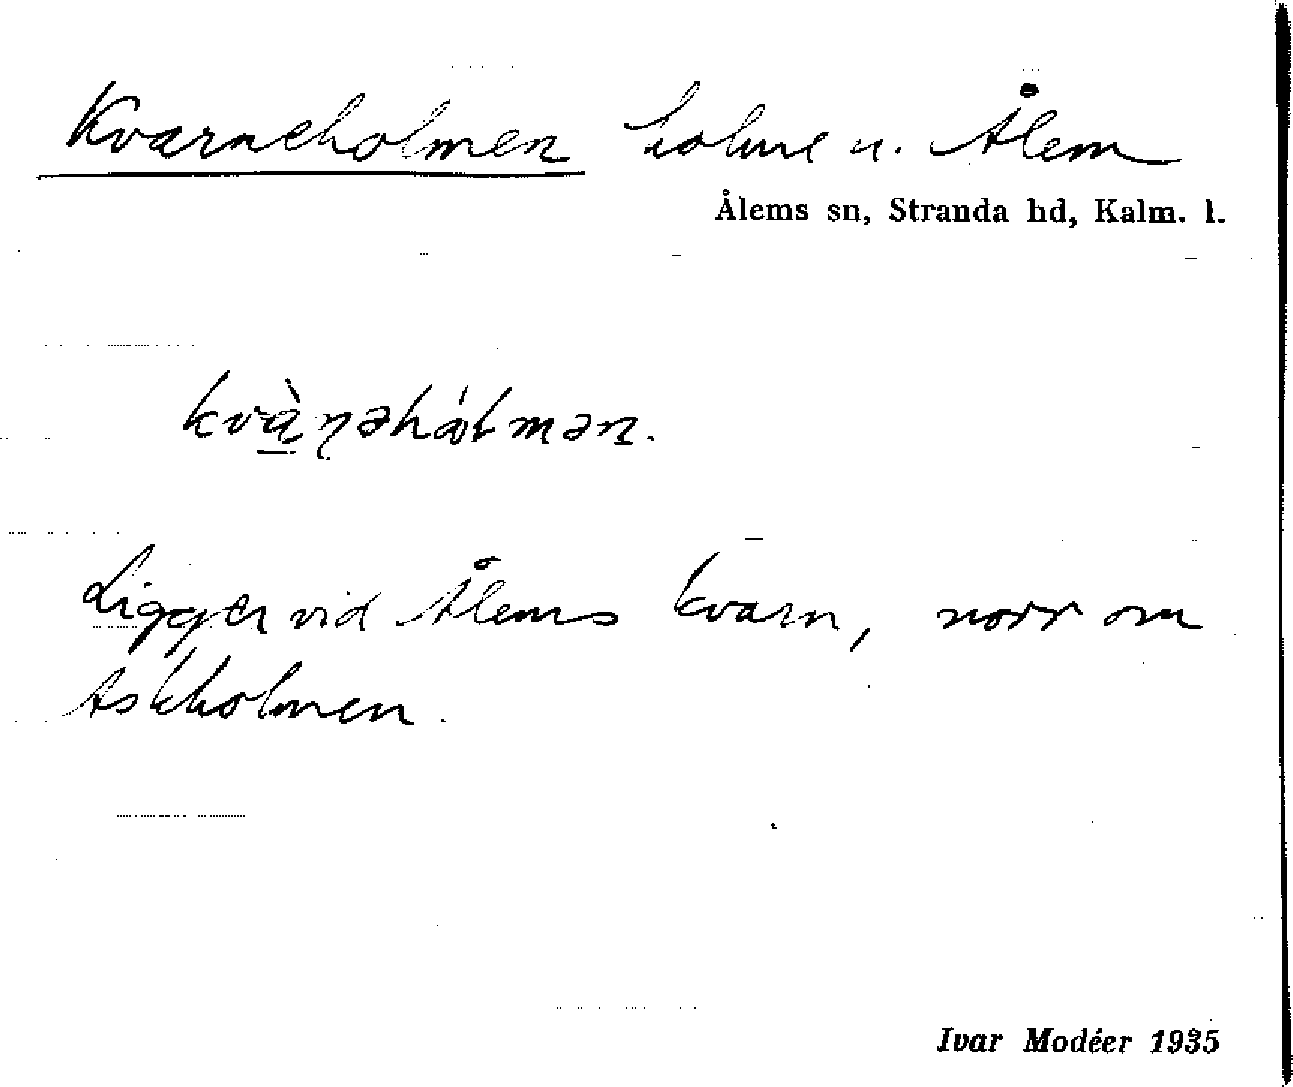 Kvarneholmen holme u. Ålem
Ålems sn, Stranda hd, Kalm. l.
kvà̱ɳəhǻɫmən.
Ligger vid Ålems kvarn, norr om
Askholmen.
Ivar Modéer 1935